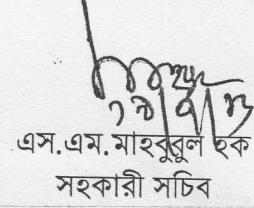 এস.এম. মাহবুবুল হক
সহকারী সচিব